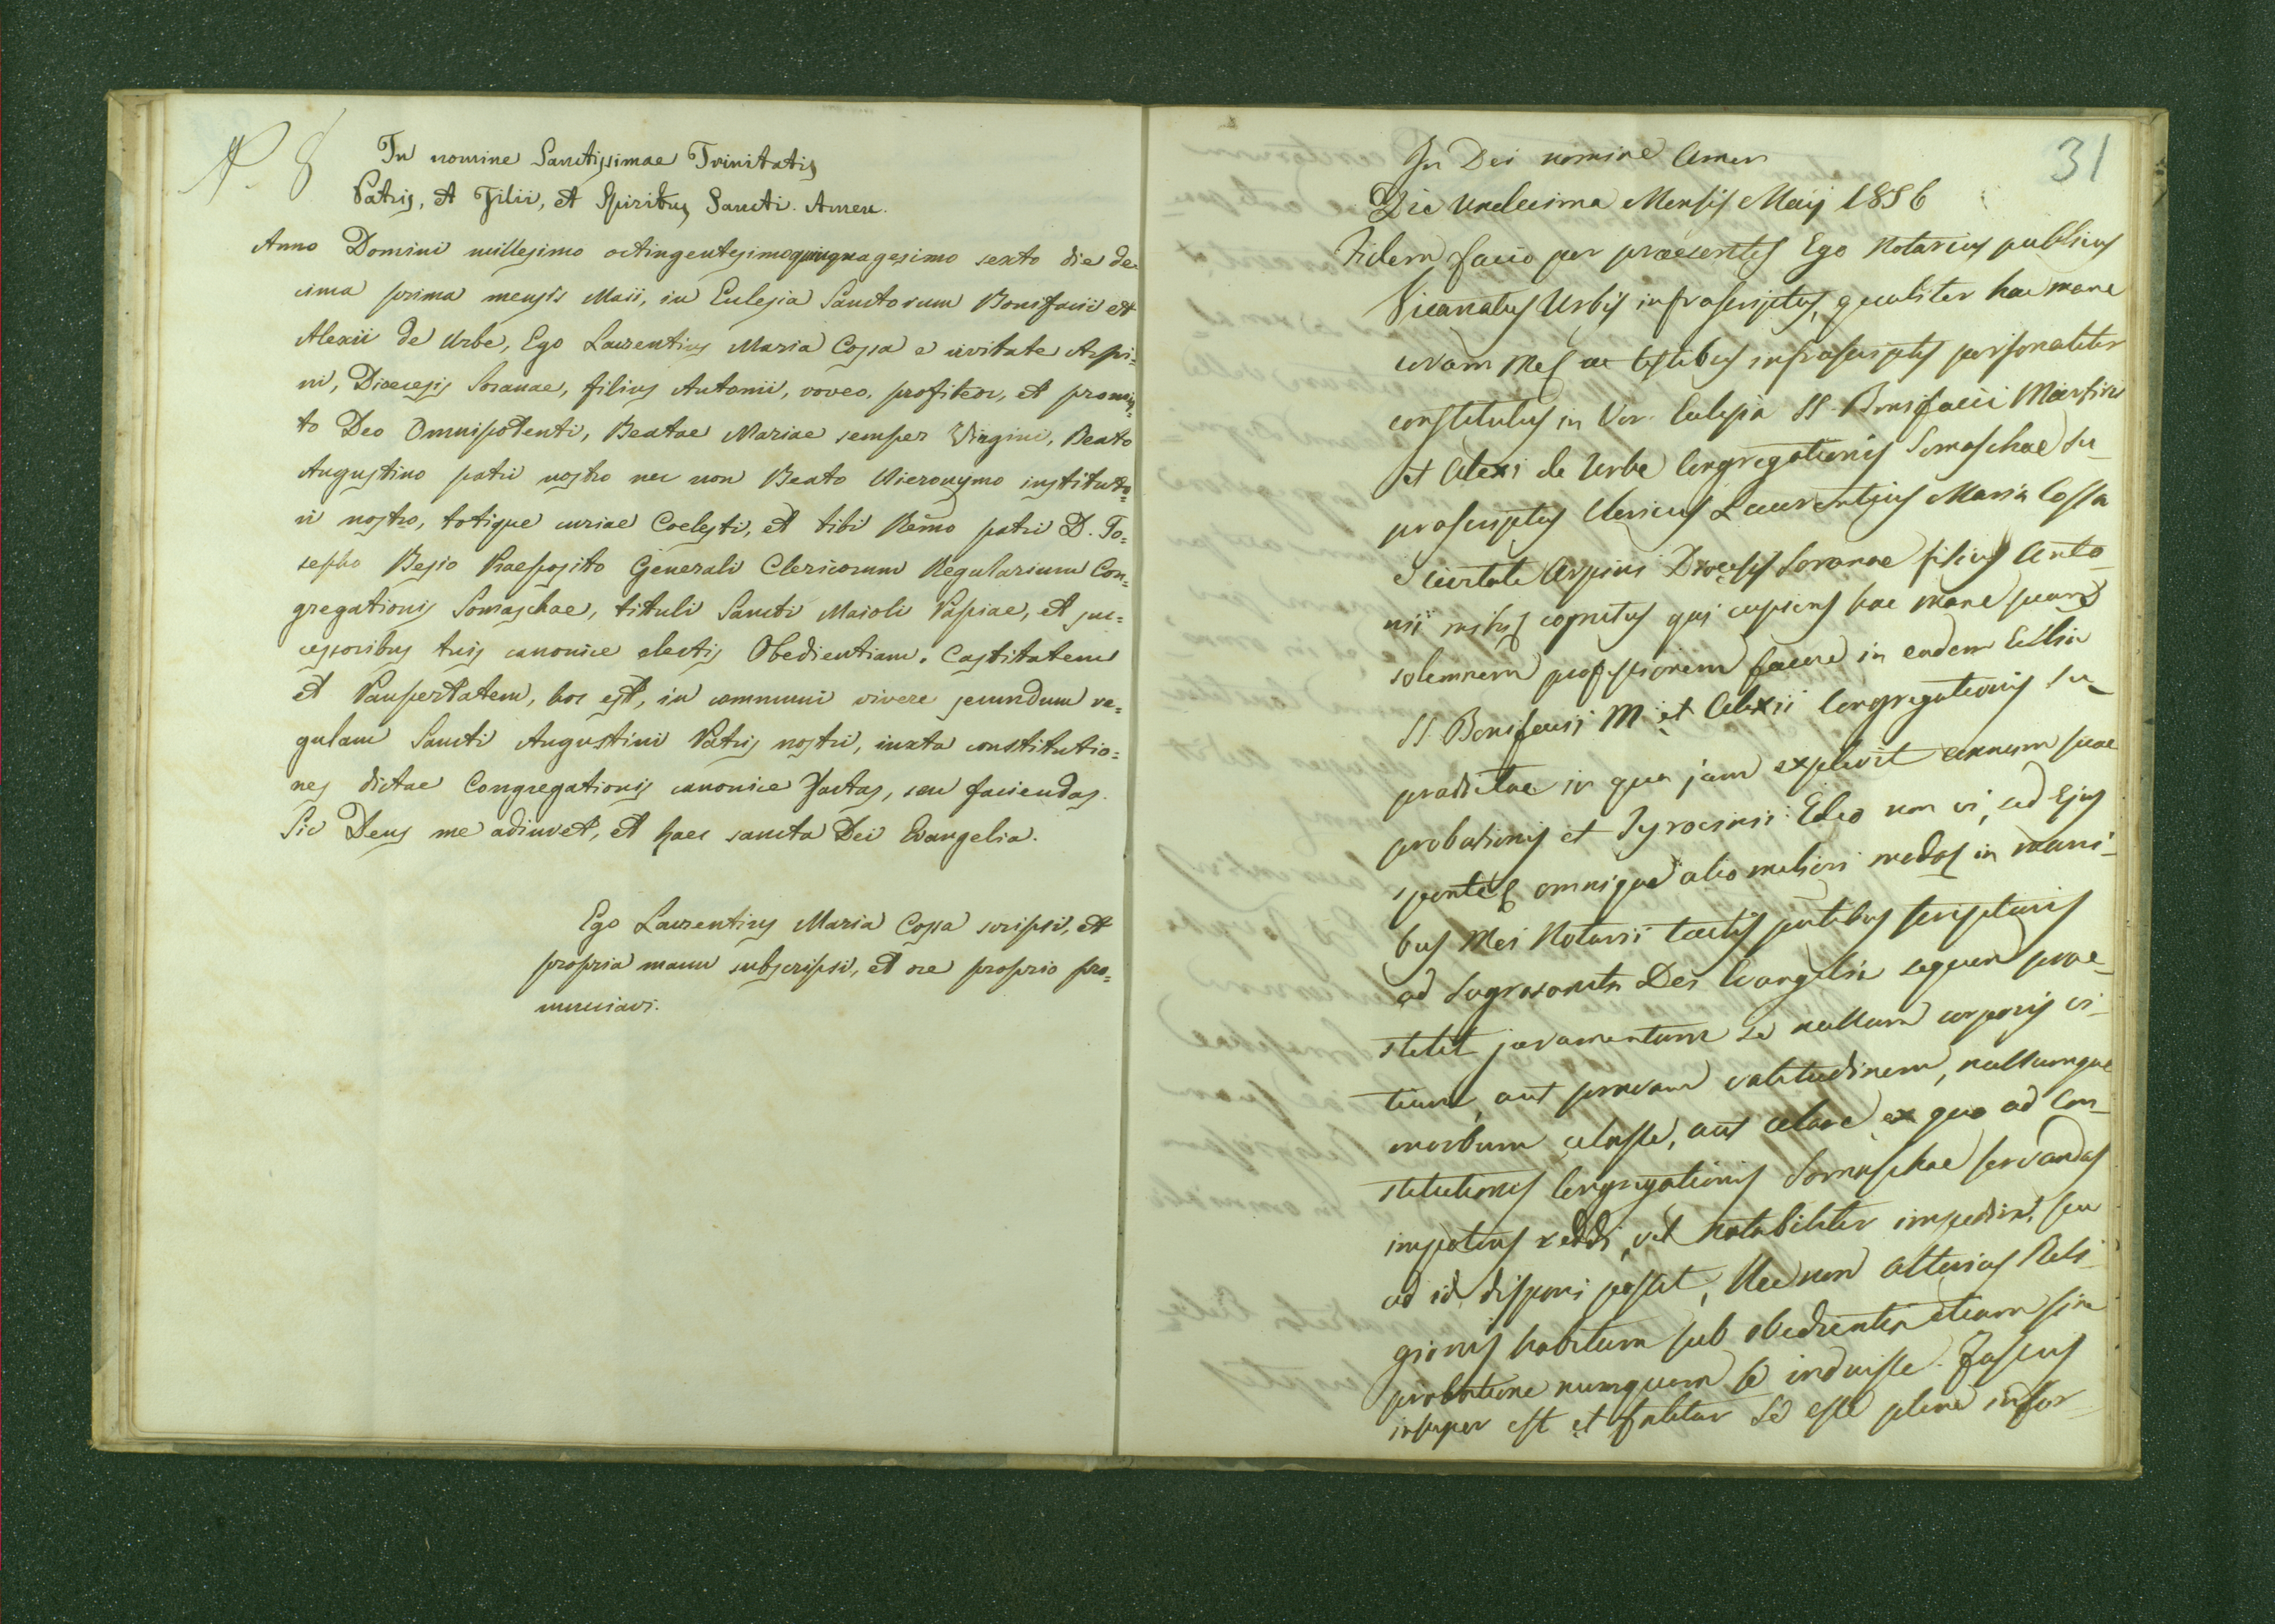 N. 8
In nomine Sanctissimae Trinitatis
Patris, et Filii, et Spiritus Sancti. Amen.
Anno Domini millesimo octingentesimo quinquagesimo sexto die de-
cima prima mensis Maii, in Eclesia Sanctorum Bonifacii et
Alexii de Urbe, Ego Laurentius Maria Cossa e civitate Arpi=
ni, Dioecesis Soranae, filius Antonii, voveo, profiteor, et promit=
to Deo Omnipotenti, Beatae Mariae semper Virgini, Beato
Augustino patri nostro nec non Beato Hieronymo instituto=
ri nostro, totique curiae Coelesti, et tibi Rẽmo patri D. Jo=
sepho Besio Praeposito Generali Clericorum Regularium Con=
gregationis Somaschae, tituli Sancti Maioli Papiae, et suc=
cessoribus tuis canonice electis Obedientiam, Castitatem
et Paupertatem, hoc est, in communi vivere secundum re=
gulam Sancti Augustini Patris nostri, iuxta constitutio=
nes dictae Congregationis canonice factas, seu faciendas.
Sic Deus me adiuvet, et haec sancta Dei Evangelia.
Ego Laurentius Maria Cossa scripsi, et
propria manu subscripsi, et ore proprio pro=
nunciavi.
31
In Dei nomine Amen
Die undecima Mensis Maij 1856
Fidem facio per praesentes Ego Notarius publicus
Vicariatus Urbis infrascriptus, qualiter hac mane
coram me ac testibus infrascriptis personaliter
constitutus in Ven. Eclesia SS. Bonifacii Martiris
et Alexi de Urbe Congregationis Somaschae su-
prascriptus Clericus Laurentius Maria Cossa
e civitate Arpini Dioecesis Soranae filius Anto-
nii mihi cognitus qui cupiens hac mane suam
solemnem professionem facere in eadem Ecclia
SS. Bonifacii M. et Alexii Congregationis su-
pradictae in qua jam explevit annum suae
probationis et Tyrocinii: Ideo non vi, sed ejus
sponte omnique alio meliori modo in mani-
bus Mei Notarii tactis scripturis
ad Sagrosancta Dei Evangelia sequens prae-
stitit juramentum se nullum corporis vi-
tium, aut pravam valetudinem, nullumque
morbum celasse, aut celare ex quo ad Con-
stitutiones Congregationis Somaschae servandas
impotens reddi, vel notabiliter impediri, seu
ad id disponi posset, Nec non alterius Reli-
gionis habitum sub obedientia etiam sine
probatione numquam se induisse. Fassus
insuper est et fatetur Se esse plene infor-